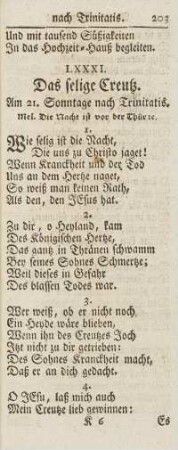 nach Trinitatis. 203
Und mit tausend Süßigkeiten
In das Hochzeit-Hauß begleiten.
LXXXI.
Das selige Creutz.
Am 21. Sonntage nach Trinitatis.
Mel. Die Nacht ist vor der Thür ꝛc.
1.
Wie selig ist die Nacht,
Die uns zu Christo jaget!
Wenn Kranckheit und der Tod
Uns an dem Hertze naget,
So weiß man keinen Rath,
Als den, den JEsus hat.
2.
Zu dir, o Heyland, kam
Des Königischen Hertze,
Das gantz in Thränen schwamm
Bey seines Sohnes Schmertze;
Weil dieses in Gefahr
Des blassen Todes war.
3.
Wer weiß, ob er nicht noch
Ein Heyde wäre blieben,
Wenn ihn des Creutzes Joch
Itzt nicht zu dir getrieben:
Des Sohnes Kranckheit macht,
Daß er an dich gedacht.
4.
O JEsu, laß mich auch
Mein Creutze lieb gewinnen:
K 6 Es